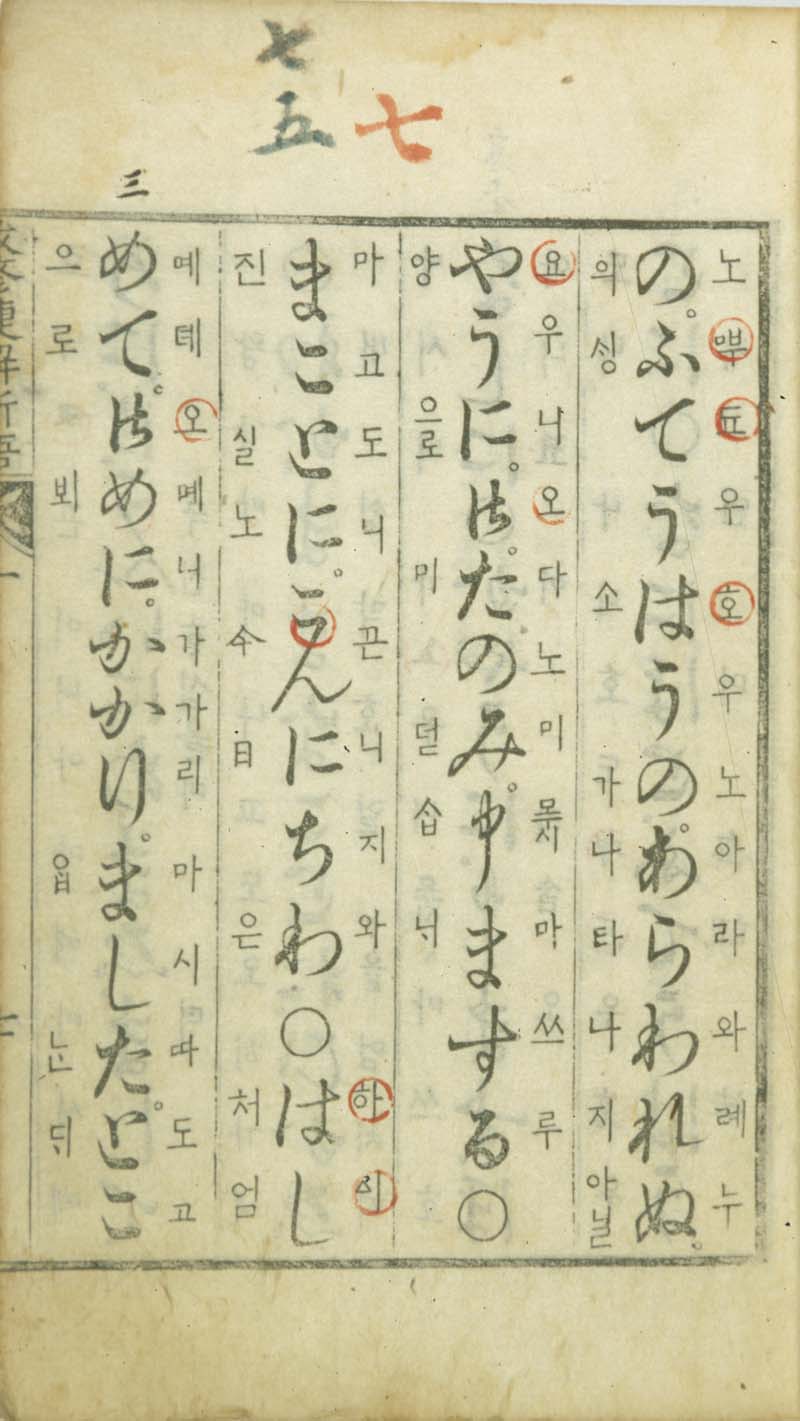 七
七
五
三
노 우 호 우 노 아 라 와 례 누
のふてうはうのあらわれぬ
의 셩 소 가 나 타 나 지 아닐
요 우 니 오 다 노 미 마 쓰 루
やうに御たのみ申まする○
양 으로 미 덛 ᄉᆞᆸ
마 고 도 니 끈 니 지 와 하 시
まことにこんにちわ○はし
진 실 노 今 日 은 처 엄
몌 뎨 오 몌 니 가 가 리 마 시 따 도 고
めて御めにかかりましたとこ
으 로 뵈 ᄋᆞᆸ ᄂᆞᆫ ᄃᆡ